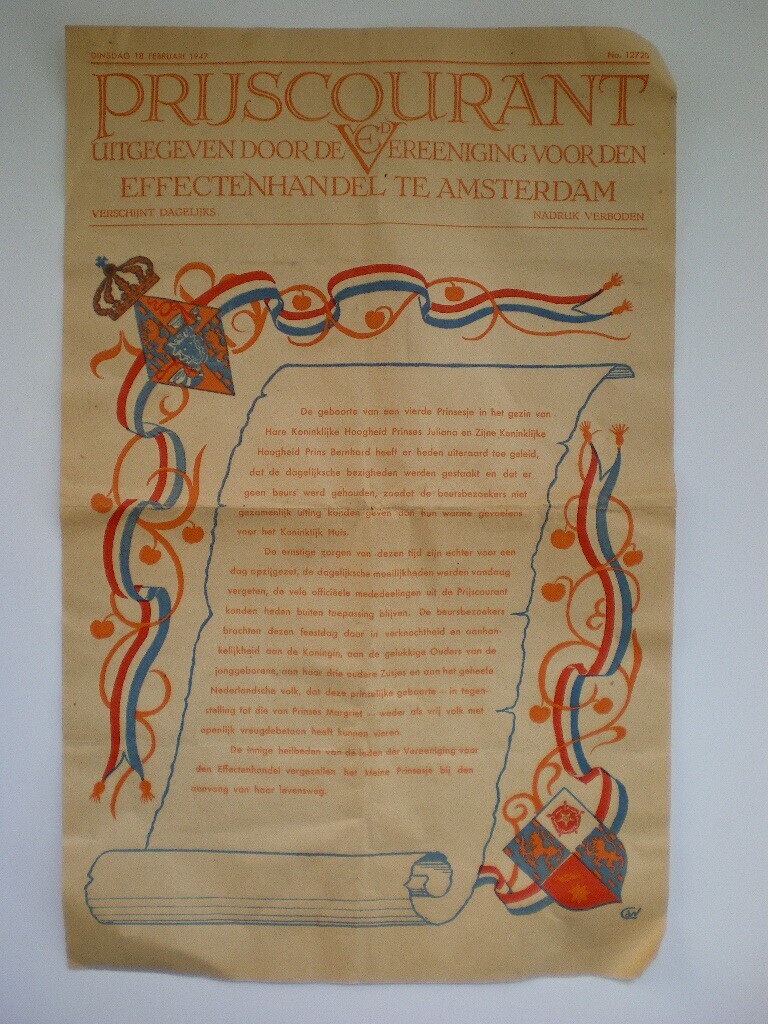 DINSDAG 18 FEBRUARI 1947
No. 12725
PRIJSCOURANT
UITGEGEVEN DOOR DE VEREENIGING VOOR DEN
EFFECTENHANDEL TE AMSTERDAM
VERSCHIJNT DAGELIJKS
NADRUK VERBODEN
De geboorte van een vierde Prinsesje in het gezin van
Hare Koninklijke Hoogheid Prinses Juliana en Zijne Koninklijke
Hoogheid Prins Bernhard heeft er heden uiteraard toe geleid,
dat de dagelijksche bezigheden werden gestaakt en dat er
geen beurs werd gehouden, zoodat de beursbezoekers niet
gezamenlijk uiting konden geven aan hun warme gevoelens
voor het Koninklijk Huis.
De ernstige zorgen van dezen tijd zijn echter voor een
dag opzijgezet, de dagelijksche moeilijkheden werden vandaag
vergeten, de vele officiëele mededeelingen uit de Prijscourant
konden heden buiten toepassing blijven. De beursbezoekers
brachten dezen feestdag door in verknochtheid en aanhan-
kelijkheid aan de Koningin, aan de gelukkige Ouders van de
jonggeborene, aan haar drie oudere Zusjes en aan het geheele
Nederlandsche volk, dat deze prinselijke geboorte — in tegen-
stelling tot die van Prinses Margriet — weder als vrij volk met
openlijk vreugdebetoon heeft kunnen vieren.
De innige heilbeden van de leden der Vereeniging voor
den Effectenhandel vergezellen het kleine Prinsesje bij den
aanvang van haar levensweg.